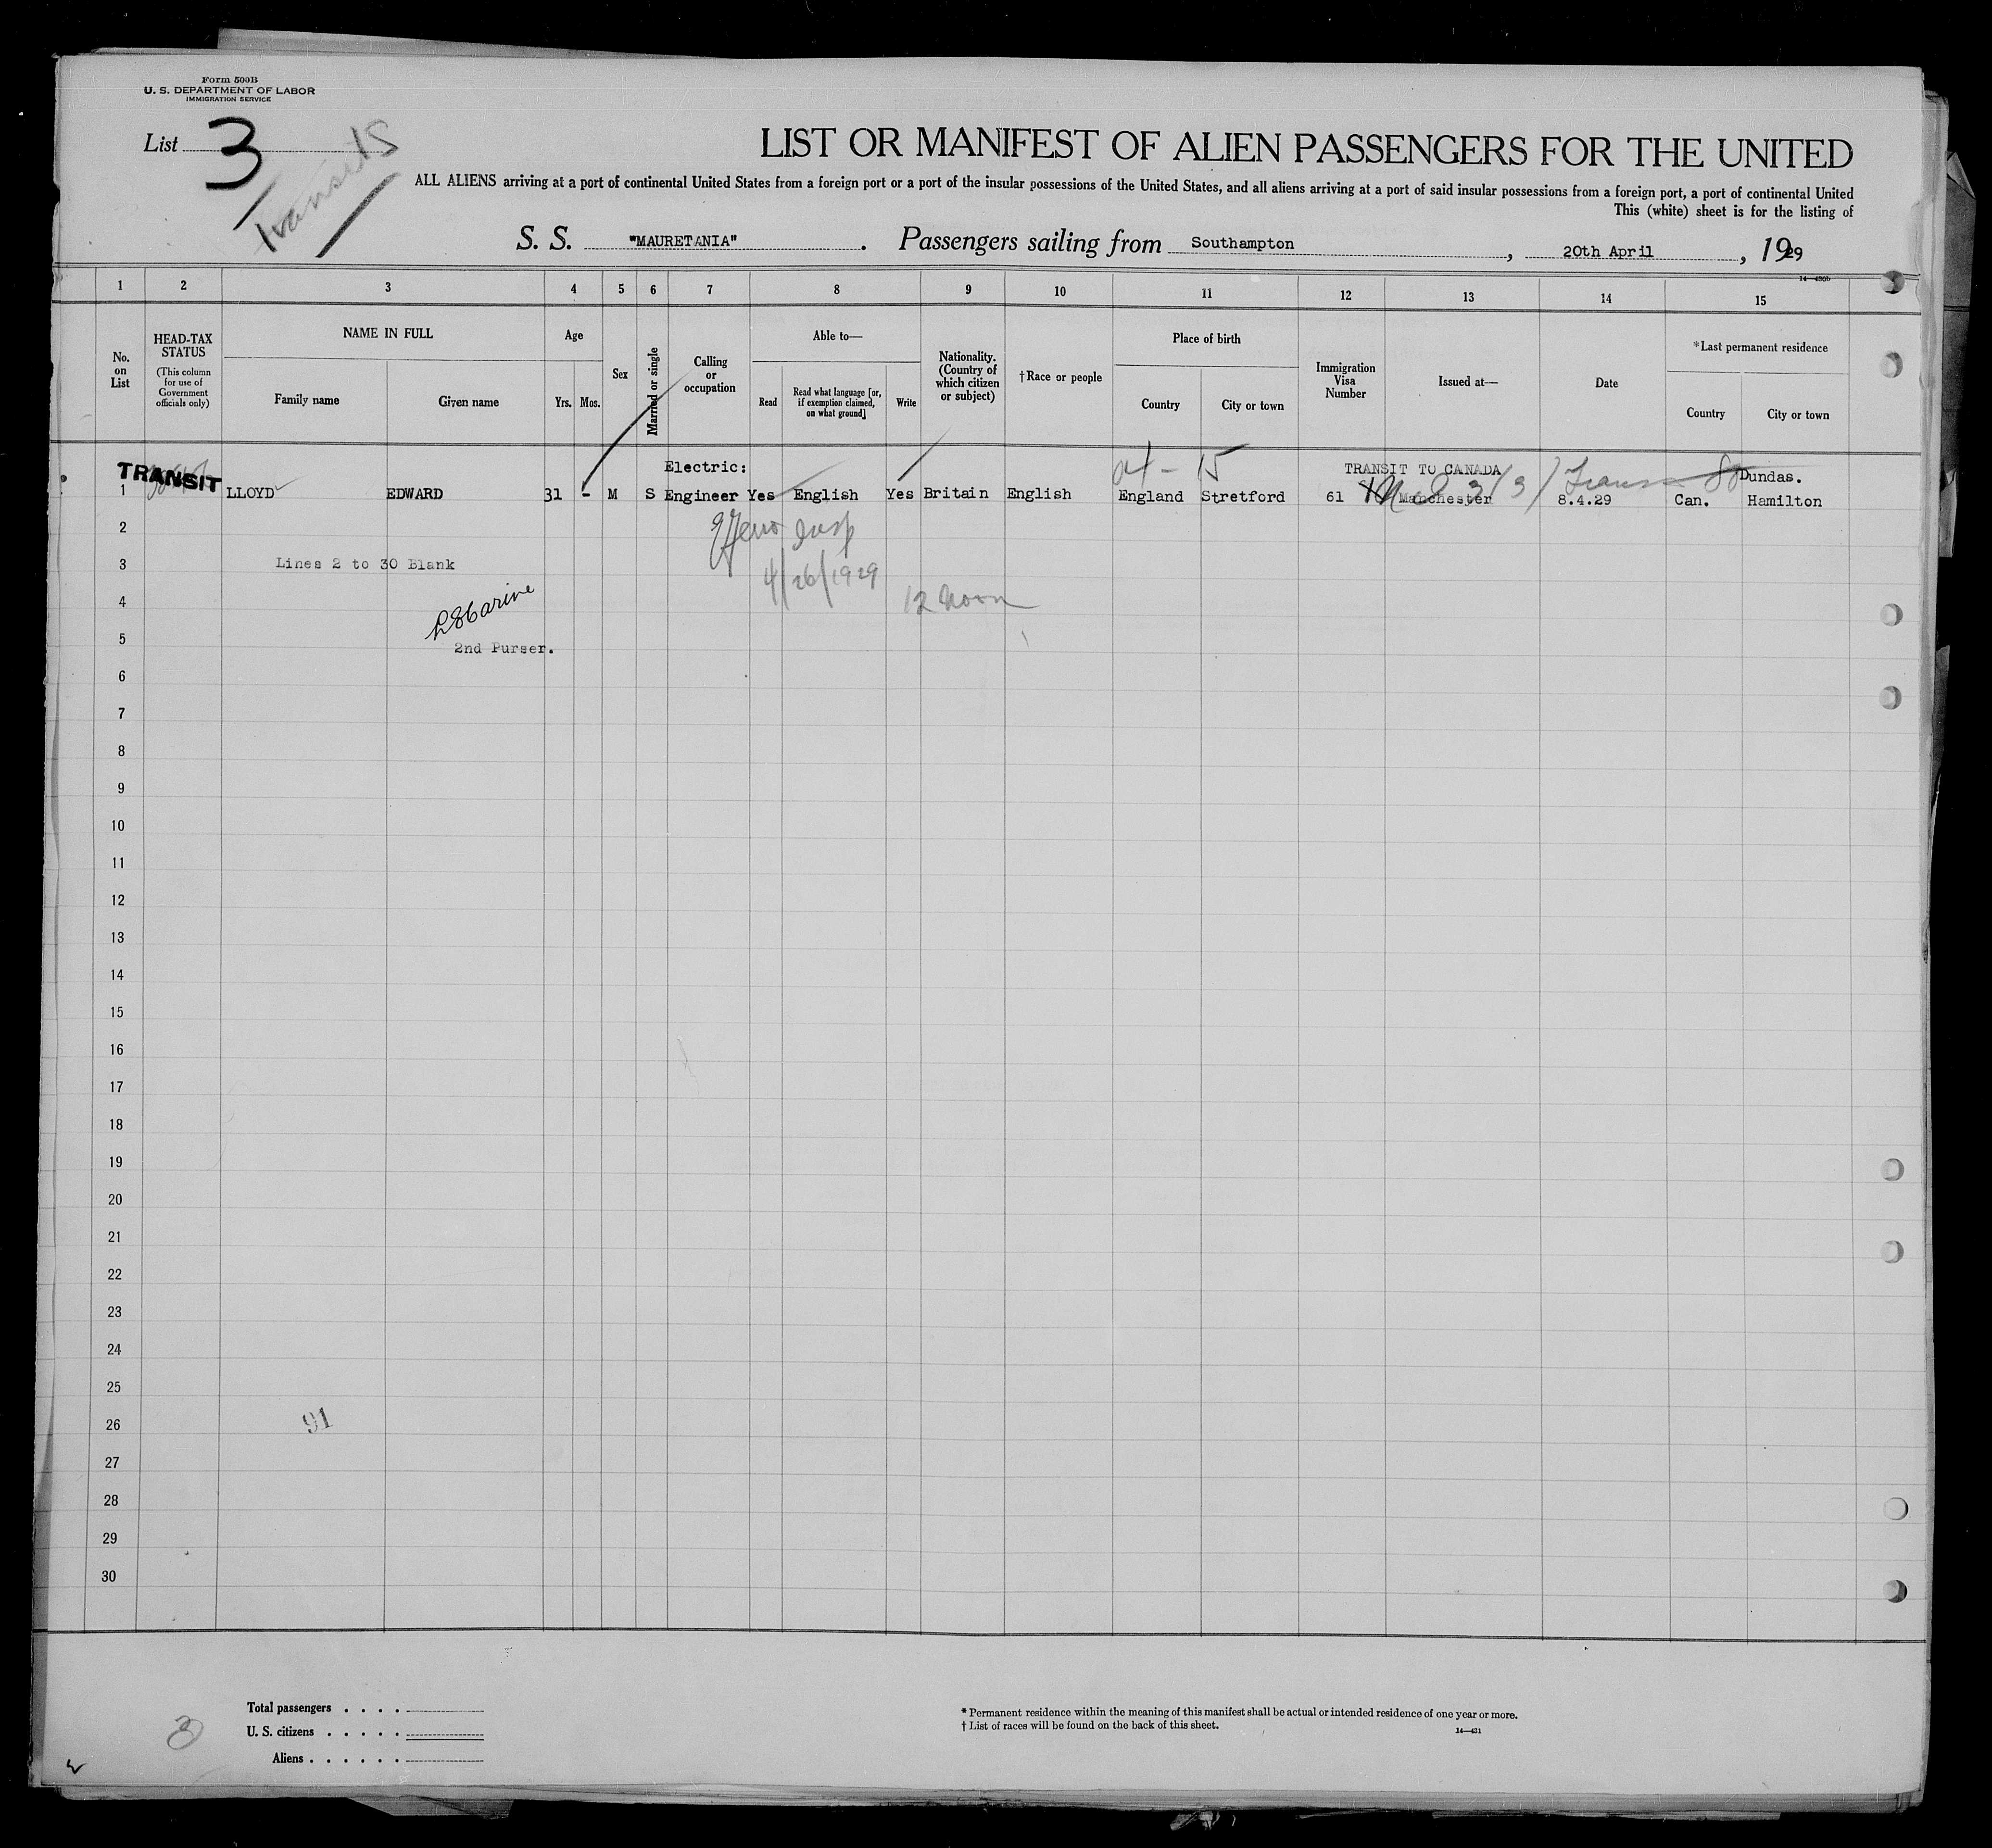 Form 500B
U. S. DEPARTMENT OF LABOR
IMMIGRATION SERVICE
List 3
Transits
LIST OR MANIFEST OF ALIEN PASSENGERS FOR THE UNITED
ALL ALIENS arriving at a port of continental United States from a foreign port or a port of the insular possessions of the United States, and all aliens arriving at a port of said insular possessions from a foreign port, a port of continental United
This (white) sheet is for the listing of
S. S. "MAURETANIA". Passengers sailing from Southampton, 20th April, 1929
14—430b
1 2 3 4 5 6 7 8 9 10 11 12 13 14 15
No. on List
HEAD-TAX STATUS (This column for use of Government officials only)
NAME IN FULL
Family name Given name
Age
Yrs. Mos.
Sex
Married or single
Calling or occupation
Able to—
Read
Read what language [or, if exemption claimed, on what ground]
Write
Nationality. (Country of which citizen or subject)
†Race or people
Place of birth
Country City or town
Immigration Visa Number
Issued at—
Date
*Last permanent residence
Country City or town
TRANSIT Electric: TRANSIT TO CANADA Trans Dundas.
1 LLOYD EDWARD 31 - M S Engineer Yes English Yes Britain English England Stretford 61 Manchester 8.4.29 Can. Hamilton
2
3 Lines 2 to 30 Blank 4/26/1929
4 12 Noon
5 2nd Purser.
6
7
8
9
10
11
12
13
14
15
16
17
18
19
20
21
22
23
24
25
26 91
27
28
29
30
Total passengers . . . .
U. S. citizens . . . . .
Aliens . . . . . .
3
* Permanent residence within the meaning of this manifest shall be actual or intended residence of one year or more.
† List of races will be found on the back of this sheet.
14—431